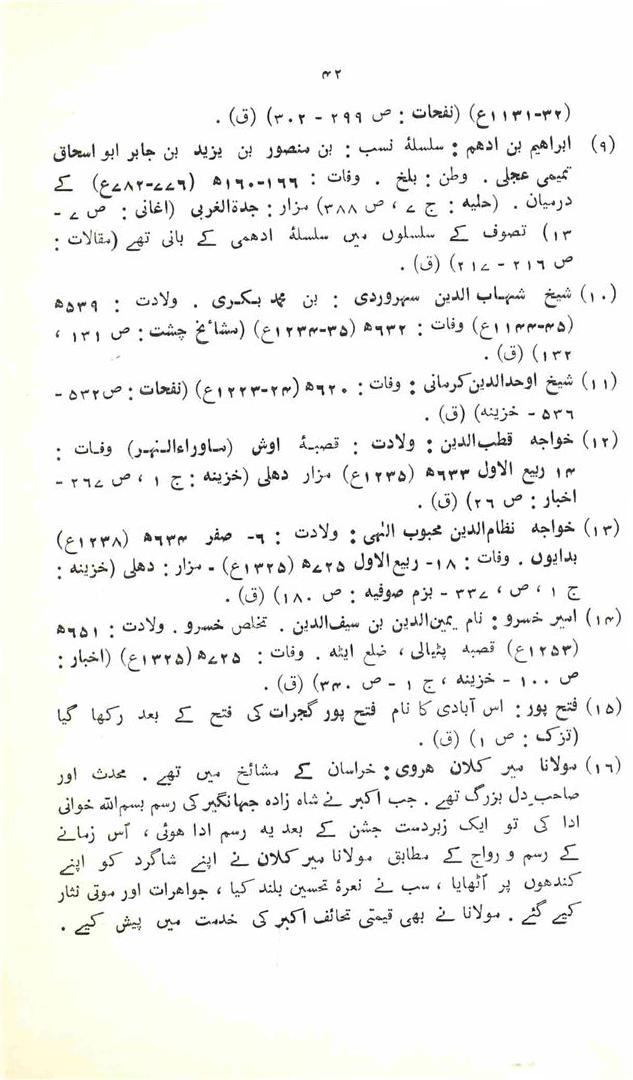 ۴۲
(۳۲-۱۱۳۱ع) (نفحات : ص ۲۹۹ - ۳۰۲) (ق) .
(۹) ابراهیم بن ادهم : سلسلۂ نسب : بن منصور بن یزید بن جابر ابو اسحاق
تمیمی عجلی . وطن : بلخ . وفات : ۱۶۶-۱۶۰ھ (۷۷۶-۷۸۲ع) کے
درمیان . (حلیه : ج ۷ ، ص ۳۸۸) مزار : جدةالغربی (اغانی : ص ۷ -
۱۳) تصوف کے سلسلوں میں سلسلۂ ادھمی کے بانی تھے (مقالات :
ص ۲۱۶ - ۲۱۷) (ق) .
(۱۰) شیخ شهاب الدین سهروردی : بن محمد بکری . ولادت : ۵۳۹ھ
(۴۵-۱۱۴۴ع) وفات : ۶۳۲ھ (۳۵-۱۲۳۴ع) (مشائخ چشت : ص ۱۳۱ ،
۱۳۲) (ق) .
(۱۱) شیخ اوحدالدین کرمانی : وفات : ۶۲۰ھ (۲۴-۱۲۲۳ع) (نفحات : ص ۵۳۲ -
۵۳۶ - خزینه) (ق) .
(۱۲) خواجه قطب الدین : ولادت : قصبۂ اوش (ماوراءالنهر) وفات :
۱۴ ربیع الاول ۶۳۳ھ (۱۲۳۵ع) مزار دهلی (خزینه : ج ۱ ، ص ۲۶۷ -
اخبار : ص ۲۶) (ق) .
(۱۳) خواجه نظام الدین محبوب الٰہی : ولادت : ۶- صفر ۶۳۴ھ (۱۲۳۸ع)
بدایوں . وفات : ۱۸- ربیع الاول ۷۲۵ھ (۱۳۲۵ع) - مزار : دهلی (خزینه :
ج ۱ ، ص ، ۳۳۷ - بزم صوفیه : ص ۱۸۰) (ق) .
(۱۴) امیر خسرو : نام یمین الدین بن سیف الدین . تخلص خسرو . ولادت : ۶۵۱ھ
(۱۲۵۳ع) قصبه پٹیالی ، ضلع ایٹه . وفات : ۷۲۵ھ (۱۳۲۵ع) (اخبار :
ص ۱۰۰ - خزینه ، ج ۱ - ص ۳۴۰) (ق) .
(۱۵) فتح پور : اس آبادی کا نام فتح پور گجرات کی فتح کے بعد رکھا گیا
(تزک : ص ۱) (ق) .
(۱۶) مولانا میر کلان هروی : خراسان کے مشائخ میں تھے . محدث اور
صاحب دل بزرگ تھے . جب اکبر نے شاہ زادہ جہانگیر کی رسم بسم اللہ خوانی
ادا کی تو ایک زبردست جشن کے بعد یه رسم ادا هوئی ، اُس زمانے
کے رسم و رواج کے مطابق مولانا میر کلان نے اپنے شاگرد کو اپنے
کندھوں پر اُٹھایا ، سب نے نعرۂ تحسین بلند کیا ، جواهرات اور موتی نثار
کیے گئے . مولانا نے بھی قیمتی تحائف اکبر کی خدمت میں پیش کیے .